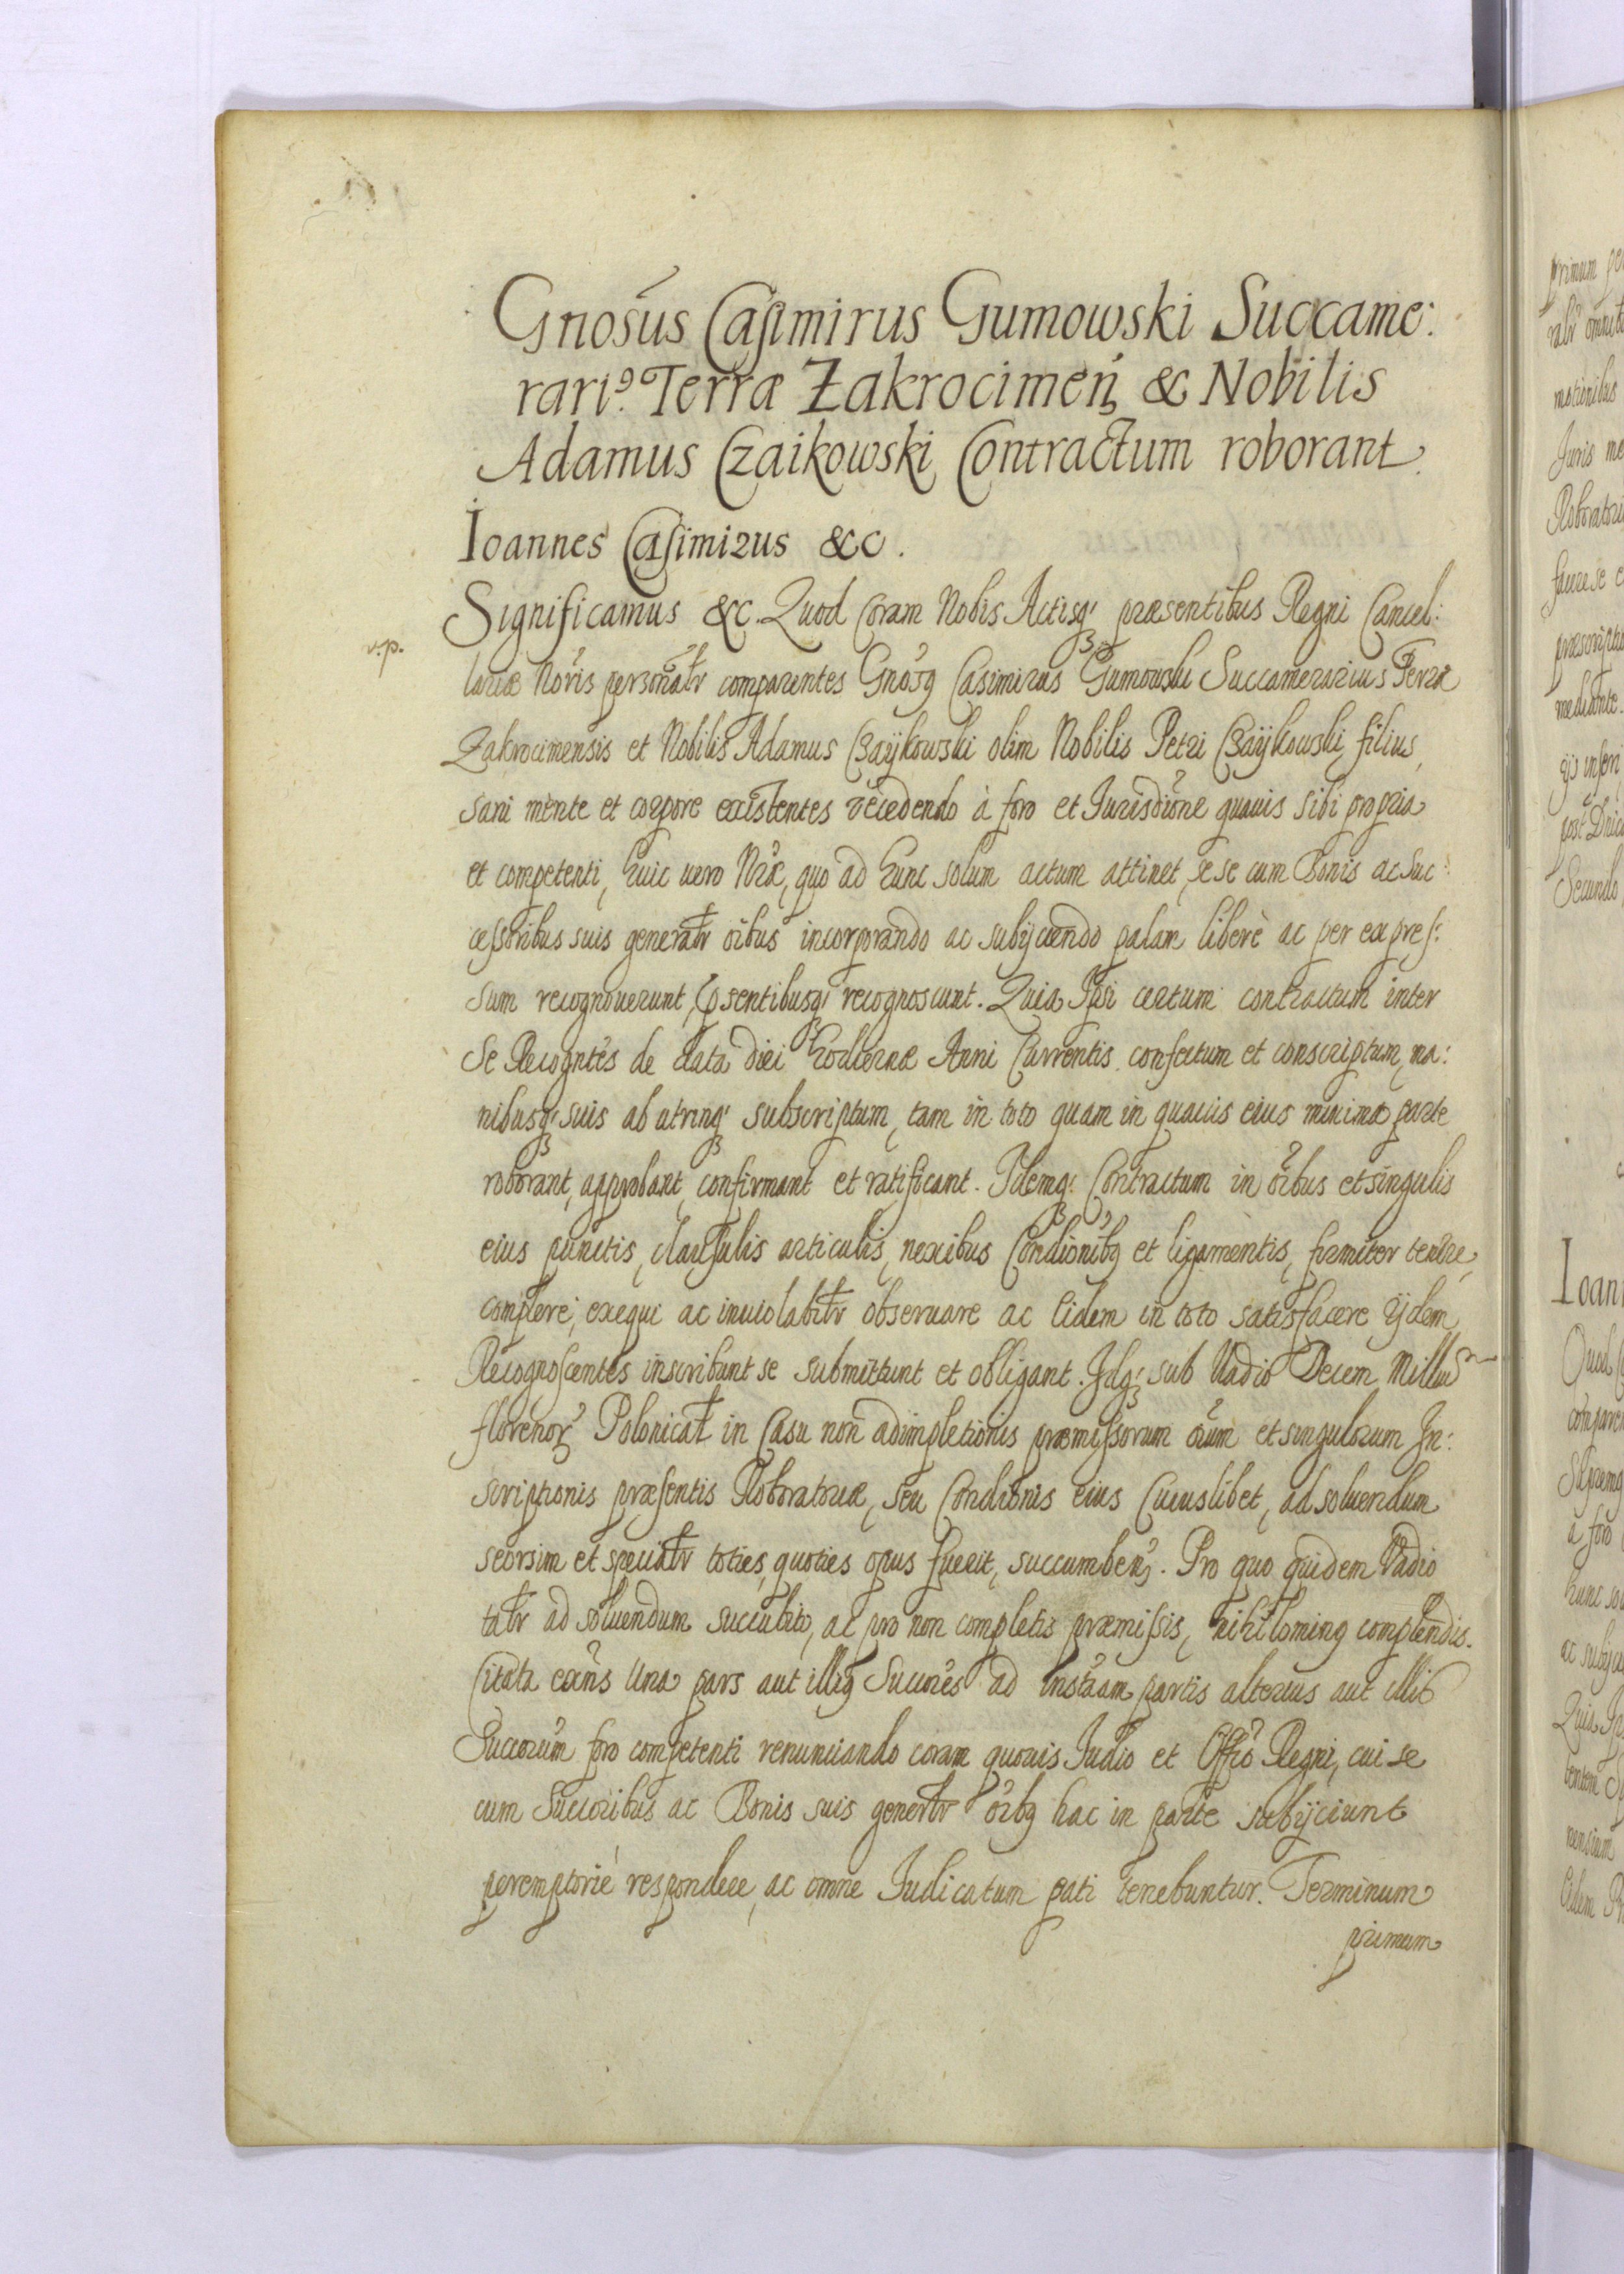 Gnosus Casimirus Gumowski Succame:
rari9. Terræ Zakrocimen & Nobilis
Adamus Czaikowski Contractum roborant.
Ioannes Casimirus &c.
Significamus &c. Quod Coram Nobis Actisq3 præsentibus Regni Cancel:
v.p.
lariæ Nõris personatr comparentes Gnõs9 Casimirus Gumowski Succamerarius Terræ
Zakrocimensis et Nobilis Adamus Czaÿkowski olim Nobilis Petri Czaÿkowski filius,
sani mente et corpore existentes recedendo à foro et Jurisdiõne quauis sibi propria
et competenti, huic uero Nræ, quo ad hunc solum actum attinet, sese cum Bonis ac Suc:
cessoribus suis generatr oibus incorporando ac subijciendo palam liberè ac per expres:
sum recognouerunt, psentibusq3 recognoscunt. Quia Ipsi certum contractum inter
Se Recogntes de data diei hodiernæ Anni Currentis confectum et conscriptum, ma:
nibusq3 suis ab utrinq3 subscriptum, tam in toto quam in quauis eius minima parte
roborant, approbant, confirmant et ratificant. Idemq3 Contractum in oibus et singulis
eius punctis, clausulis articulis, nexibus Condionib9 et ligamentis, firmiter tenere,
complere, exequi ac inuiolabitr obseruare ac eidem in toto satisfacere ijdem
Recognoscentes inscribunt se submittunt et obligant. Idq3 sub Vadio Decem Millium
florenor Polonical in Casu non adimpletionis præmissorum oium et singulorum In:
scriptionis præsentis Roboratoriæ, seu Condionis eius Cuiuslibet, ad soluendum
seorsim et speciatr toties, quoties opus fuerit, succumben. Pro quo quidem Vadio
tatr ad soluendum succubito, ac pro non completis præmissis, nihilomin9 complendis.
Citata exns Una pars aut illi9 Succres ad instãam partis alterius aut illi9
Succrum foro competenti renunciando coram quouis Judio et Offio Regni, cui se
cum Succoribus ac Bonis suis genertr oib9 hac in parte subijciunt
peremptoriè respondere, ac omne Iudicatum pati tenebuntur. Terminum
primum